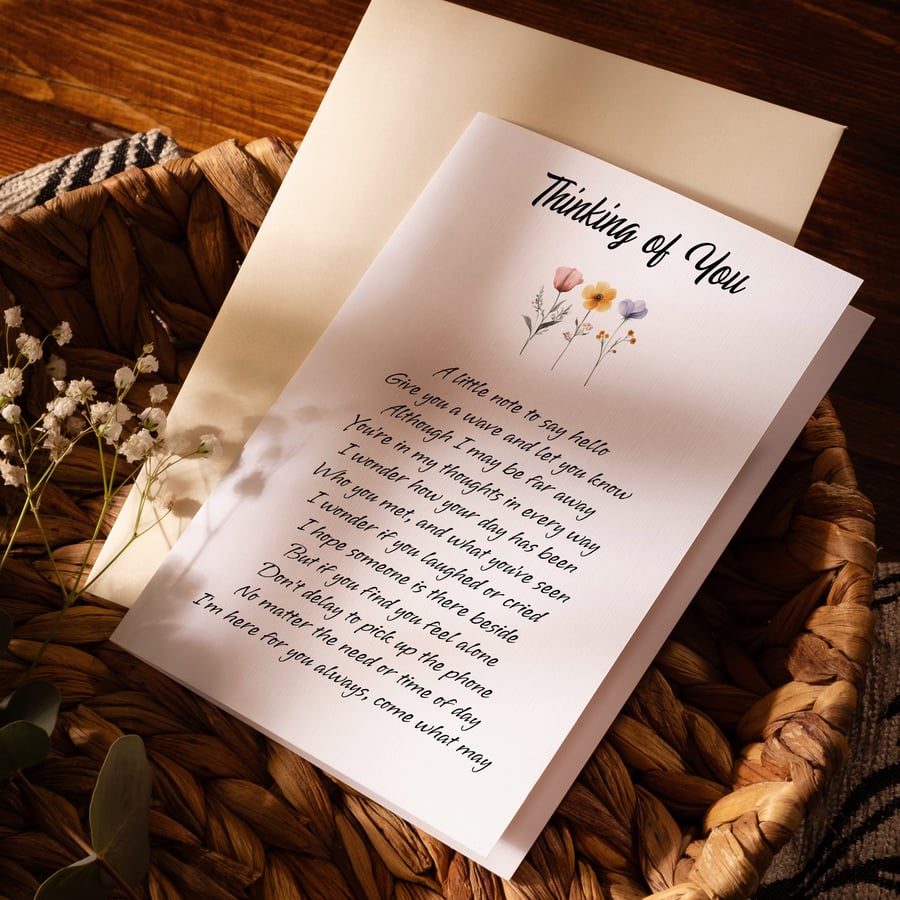 Thinking of You
A little note to say hello
Give you a wave and let you know
Although I may be far away
You're in my thoughts in every way
I wonder how your day has been
Who you met, and what you've seen
I wonder if you laughed or cried
I hope someone is there beside
But if you find you feel alone
Don't delay to pick up the phone
No matter the need or time of day
I'm here for you always, come what may